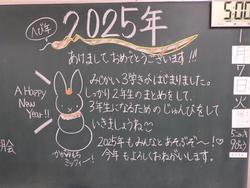 へび年
2025年
あけまして おめでとうございます!!!
A Happy
New
Year!!
みじかい3学きがはじまりました。
しっかり2年生のまとめをして、
3年生になるためのじゅんびをして
いきましょうね
2025年もみんなとあそぶぞ〜!♡
今年もよろしくおねがいします。
かがみもち
ミッフィー!
5:00
1
月
7
日
火